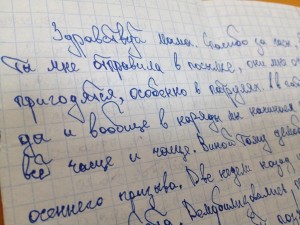 Здравствуй мама. Спасибо за часы
Ты мне отправила в посылке, они мне о
пригодятся, особенно в патрулях. В
да и вообще в наряды мы
всё чаще и чаще. Виной тому демоб
осеннего призыва. Две недели назад
Демобилизовались